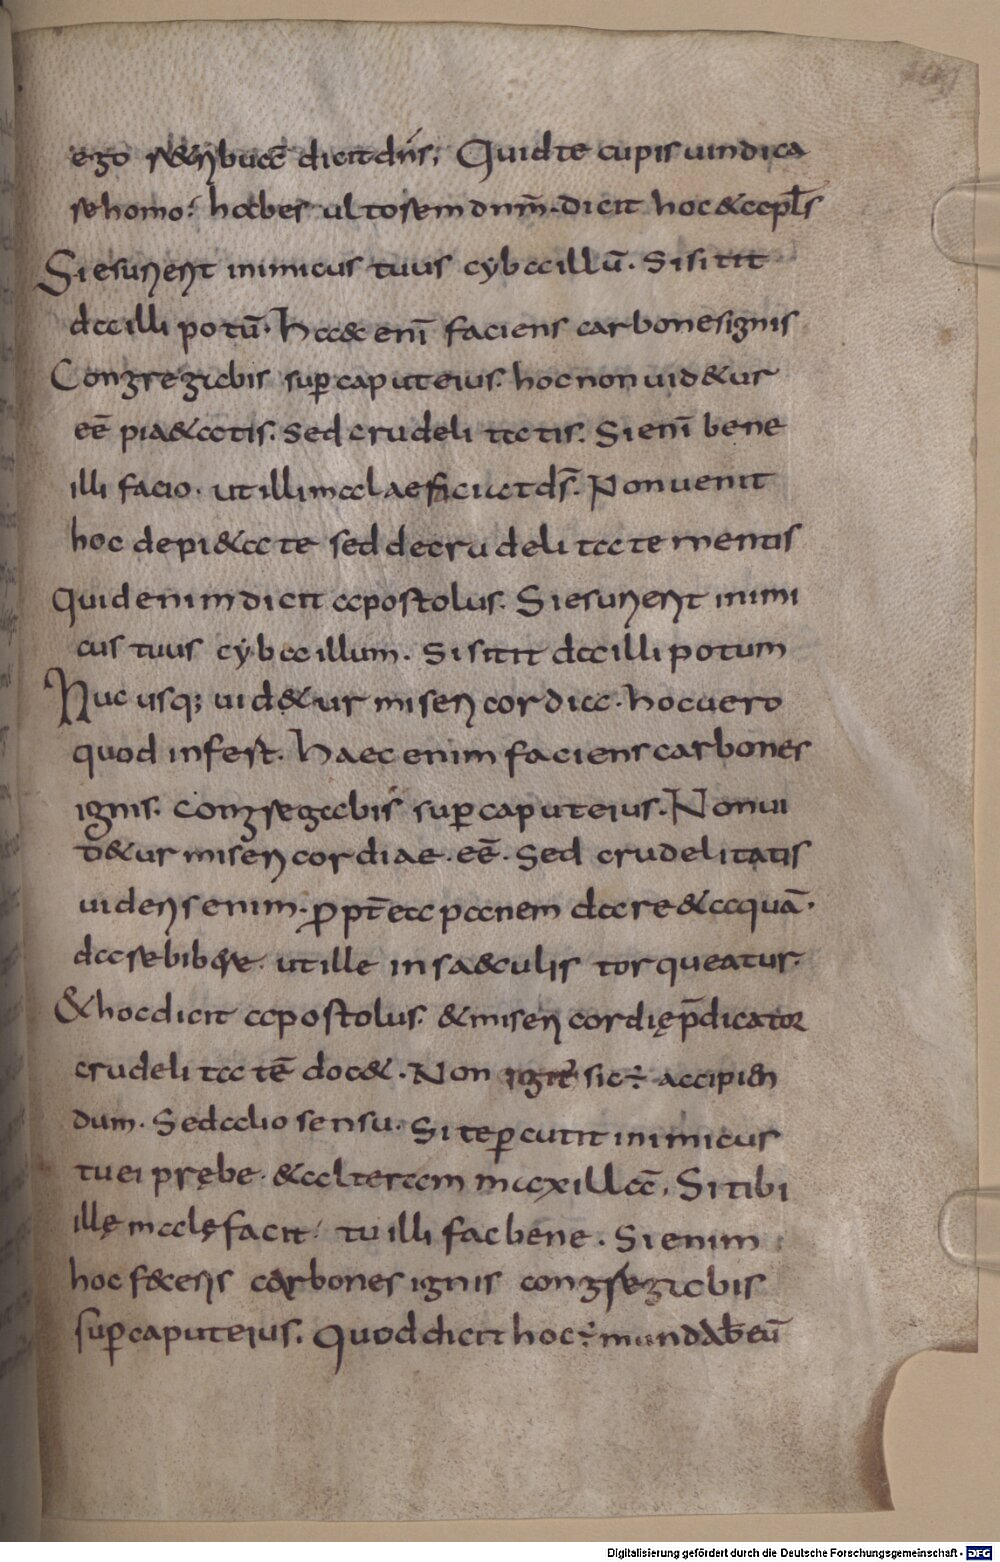 ego retribuā dicit dñs, Quid te cupis uindica
re homo? habes ultorem dnm̄. dicit hoc & apl̄s
Si esurierit inimicus tuus cyba illū. Si sitit
da illi potū. Hac enī faciens carbones ignis
Congregabis sup caput eius. hoc non uid&ur
eē pi&atis. sed crudelitatis. Si enī bene
illi facio. ut illi mala faciat ds̄. Non uenit
hoc de pi&ate sed de crudelitate mentis
Quid enim dicit apostolus. Si esurierit inimi
cus tuus cyba illum. Si sitit da illi potum
Huc usq; uid&ur misericordia. hoc uero
quod infert. Haec enim faciens carbones
ignis. congregabis sup caput eius. Non ui
d&ur misericordiae. eē. Sed crudelitatis
uidens enim. ppt̄ea panem dare & aquā.
dare bibere. ut ille in saeculis torqueatur.
& hoc dicit apostolus. & misericordię p̄dicator
crudelitatē doc&. Non igit̄ sic ÷ accipien
dum. Sed alio sensu. Si te pcutit inimicus
tu ei prębe. & alteram maxillā, Si tibi
ille malę facit, tu illi fac bene. Si enim
hoc feceris carbones ignis congregabis
sup caput eius. Quod dicit hoc ÷ mundab eū
Digitalisierung gefördert durch die Deutsche Forschungsgemeinschaft - DFG